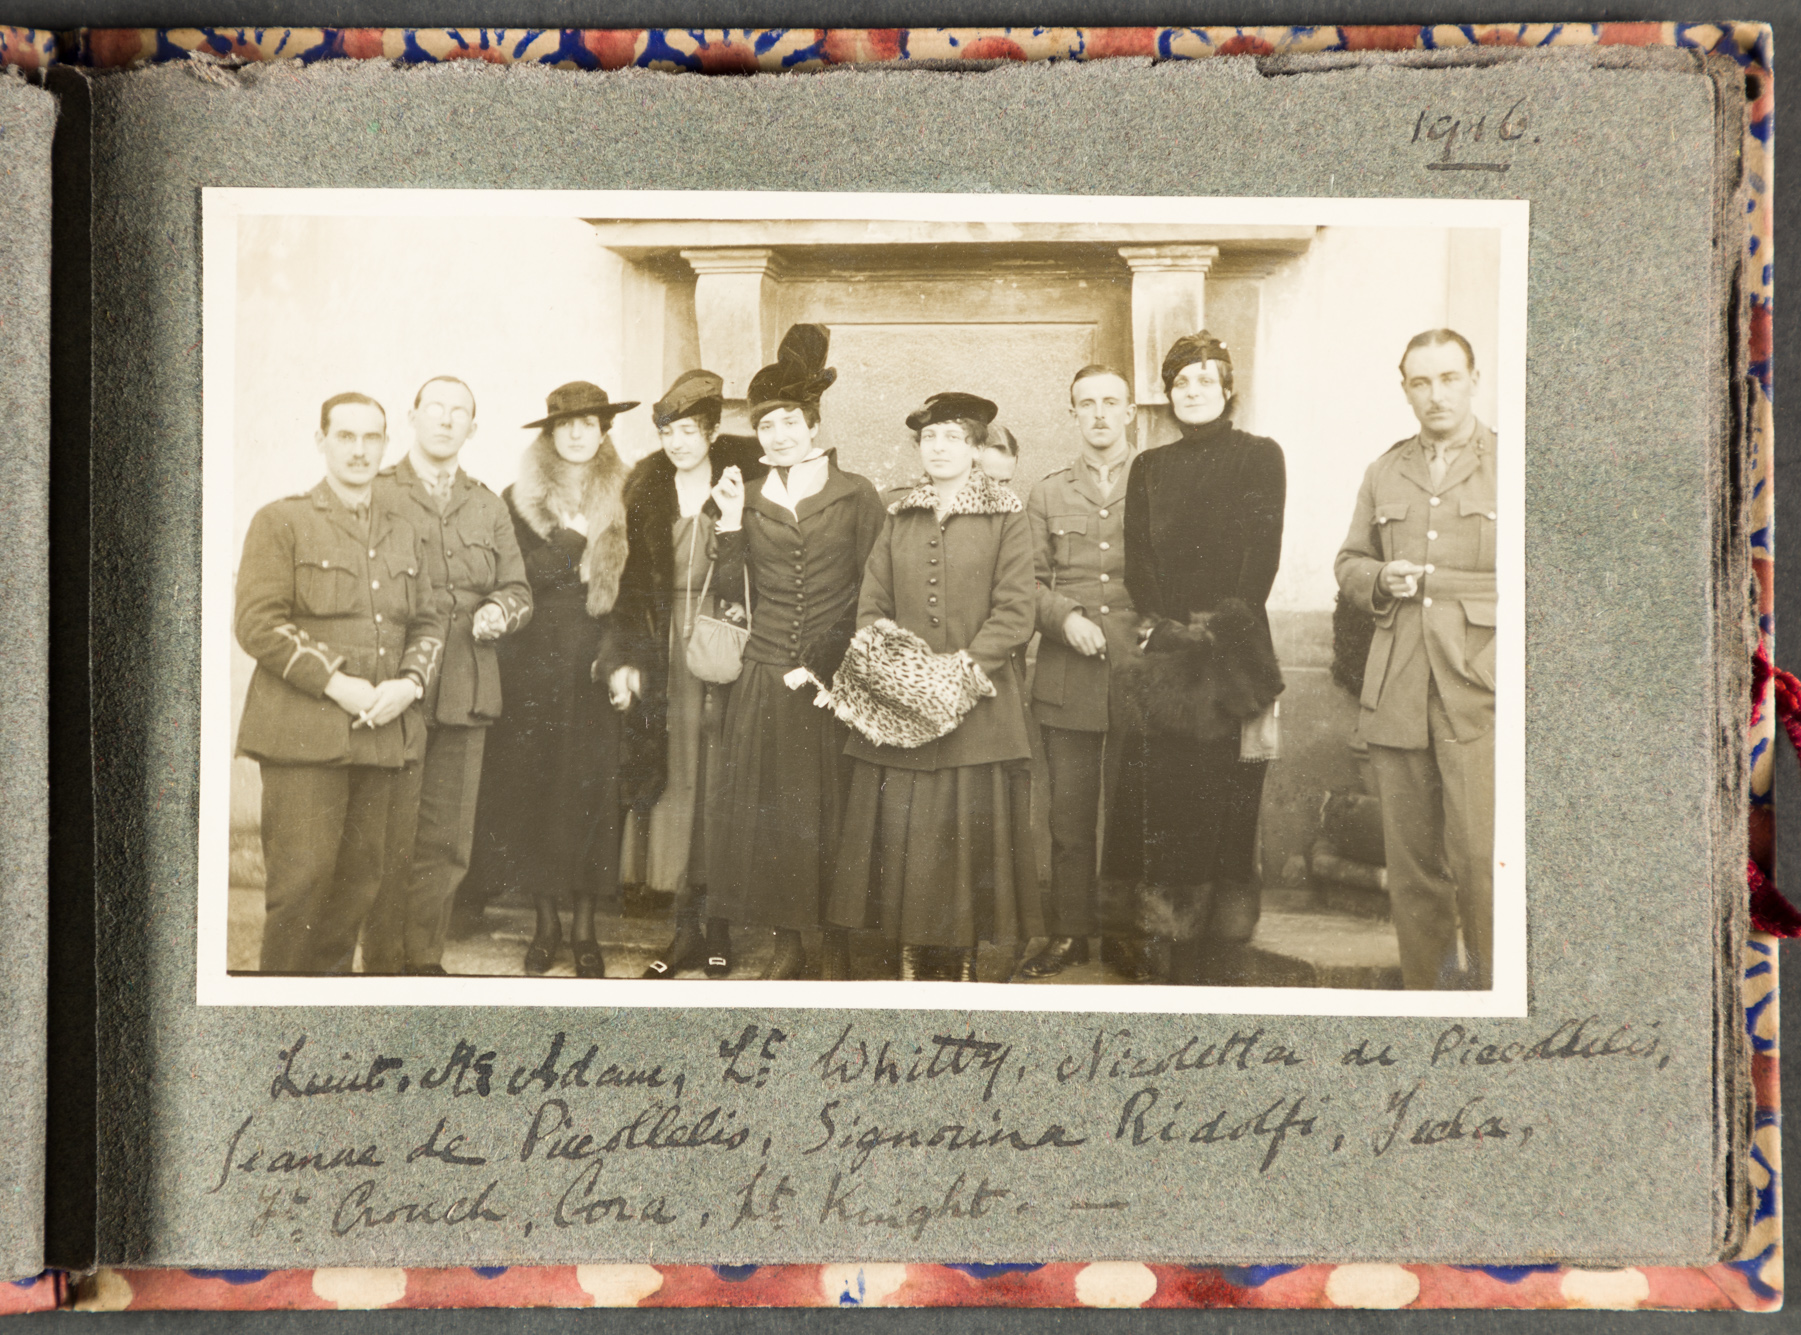 1916.
Lieut. Mc Adam, Lt. Whitty, Nicoletta de Piccollelis,
Jeanne de Piccollelis, Signorina Ridolfi,
Lt. Crouch, Cora, Lt. Knight. —